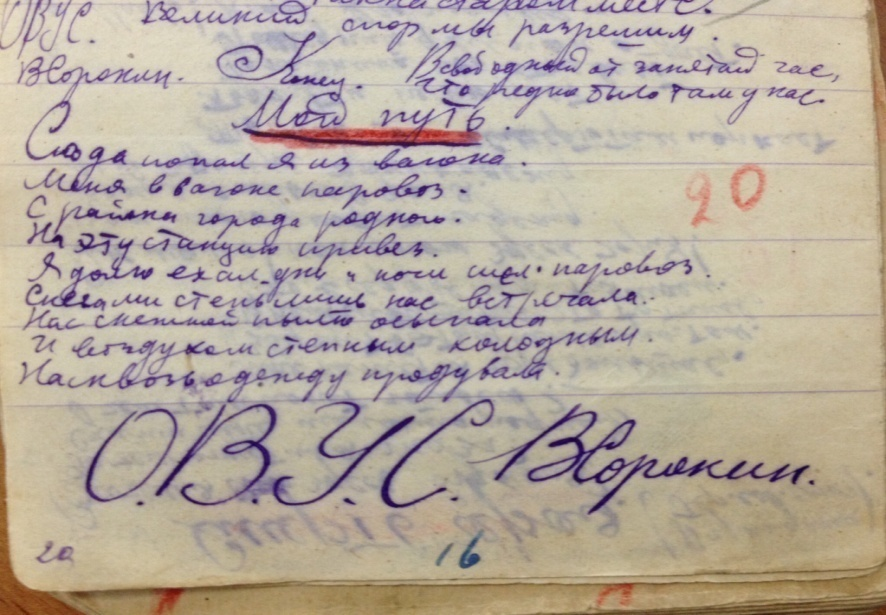 на старом месте.
О.В.У.С. Великий спор мы разрешим.
ВСорокин. Конец. В свободный от занятий час,
Что редко было там у нас.
Мой путь.
Сюда попал я из вагона.
Меня в вагоне паровоз.
С района города родного.
На эту станцию привез.
Я долго ехал, дни и ночи шел паровоз.
Снегами степь лишь нас встречала.
Нас снежной пылью осыпала
И воздухом степным холодным.
Насквозь одежду продувал.
О.В.У.С. ВСорокин.
20
20
16